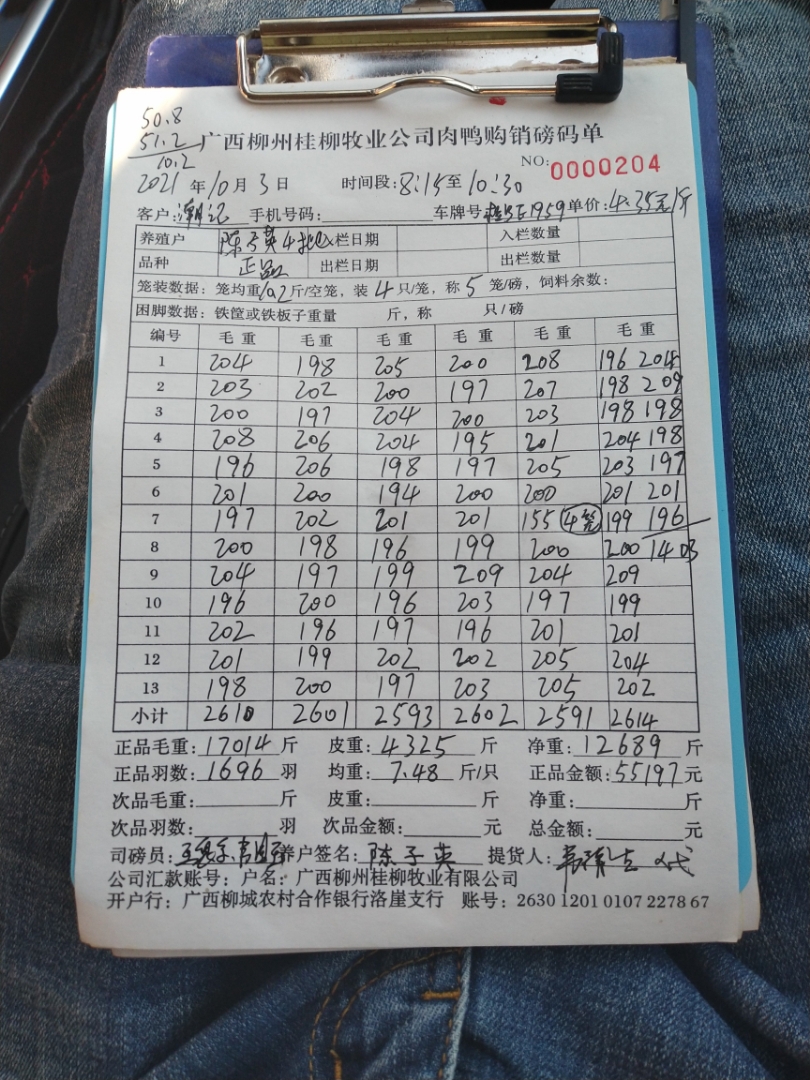 50.8
51.2
10.2
广西柳州桂柳牧业公司肉鸭购销磅码单
NO: 0000204
2021年10月3日 时间段: 8:15至10:30
客户: 手机号码: 车牌号 1959 单价: 4.35元/斤
养殖户 陈子英4批 入栏日期 入栏数量
品种 正品 出栏日期 出栏数量
笼装数据: 笼均重10.2斤/空笼, 装4只/笼, 称5笼/磅, 饲料余数:
困脚数据: 铁筐或铁板子重量 斤, 称 只/磅
编号 毛重 毛重 毛重 毛重 毛重 毛重
1 204 198 205 200 208 196 204
2 203 202 200 197 207 198 209
3 200 197 204 200 203 198 198
4 208 206 204 195 201 204 198
5 196 206 198 197 205 203 197
6 201 200 194 200 200 201 201
7 197 202 201 201 155 4笼 199 196
8 200 198 196 199 200 200 1403
9 204 197 199 209 204 209
10 196 200 196 203 197 199
11 202 196 197 196 201 201
12 201 199 202 202 205 204
13 198 200 197 203 205 202
小计 2610 2601 2593 2602 2591 2614
正品毛重: 17014斤 皮重: 4325斤 净重: 12689斤
正品羽数: 1696羽 均重: 7.48斤/只 正品金额: 55197元
次品毛重: 斤 皮重: 斤 净重: 斤
次品羽数: 羽 次品金额: 元 总金额: 元
司磅员: 养户签名: 陈子英 提货人:
公司汇款账号: 户名: 广西柳州桂柳牧业有限公司
开户行: 广西柳城农村合作银行洛崖支行 账号: 2630 1201 0107 2278 67